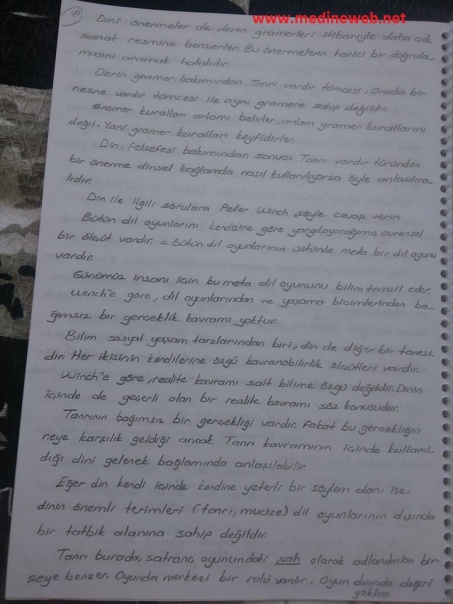 www.medineweb.net
10
Dini önermeler de derin gramerleri itibariyle daha çok
sanat resmine benzerler. Bu önermelerin harici bir doğrula-
masını aramak hatalıdır.
Derin gramer bakımından Tanrı vardır tümcesi, Orada bir
nesne vardır tümcesi ile aynı gramere sahip değildir.
Gramer kuralları anlamı belirler, anlam gramer kurallarını
değil. Yani gramer kuralları keyfidirler.
Din felsefesi bakımından sonuç: Tanrı vardır türünden
bir önerme dinsel bağlamda nasıl kullanılıyorsa öyle anlaşılma-
lıdır.
Din ile ilgili sorulara Peter Winch şöyle cevap verir.
Bütün dil oyunlarını kendisine göre yargılayacağımız evrensel
bir ölçüt vardır = bütün dil oyunlarının üstünde meta bir dil oyunu
vardır.
Günümüz insanı için bu meta dil oyununu bilim temsil eder.
Winch'e göre, dil oyunlarından ve yaşama biçimlerinden ba-
ğımsız bir gerçeklik kavramı yoktur.
Bilim sosyal yaşam tarzlarından biri, din de diğer bir tanesi
dir. Her ikisinin kendilerine özgü kavranabilirlik ölçütleri vardır.
Winch'e göre, realite kavramı salt bilime özgü değildir. Dinin
içinde de geçerli olan bir realite kavramı söz konusudur.
Tanrının bağımsız bir gerçekliği vardır. Fakat bu gerçekliğin
neye karşılık geldiği ancak Tanrı kavramının içinde kullanıl-
dığı dini gelenek bağlamında anlaşılabilir.
Eğer din kendi içinde kendine yeterli bir söylem alanı ise,
dinin önemli terimleri (tanrı, mucize) dil oyunlarının dışında
bir tatbik alanına sahip değildir.
Tanrı burada, satranç oyunundaki şah olarak adlandırılan bir
şeye benzer. Oyunda merkezi bir rolü vardır. Oyun dışında değeri
yoktur.